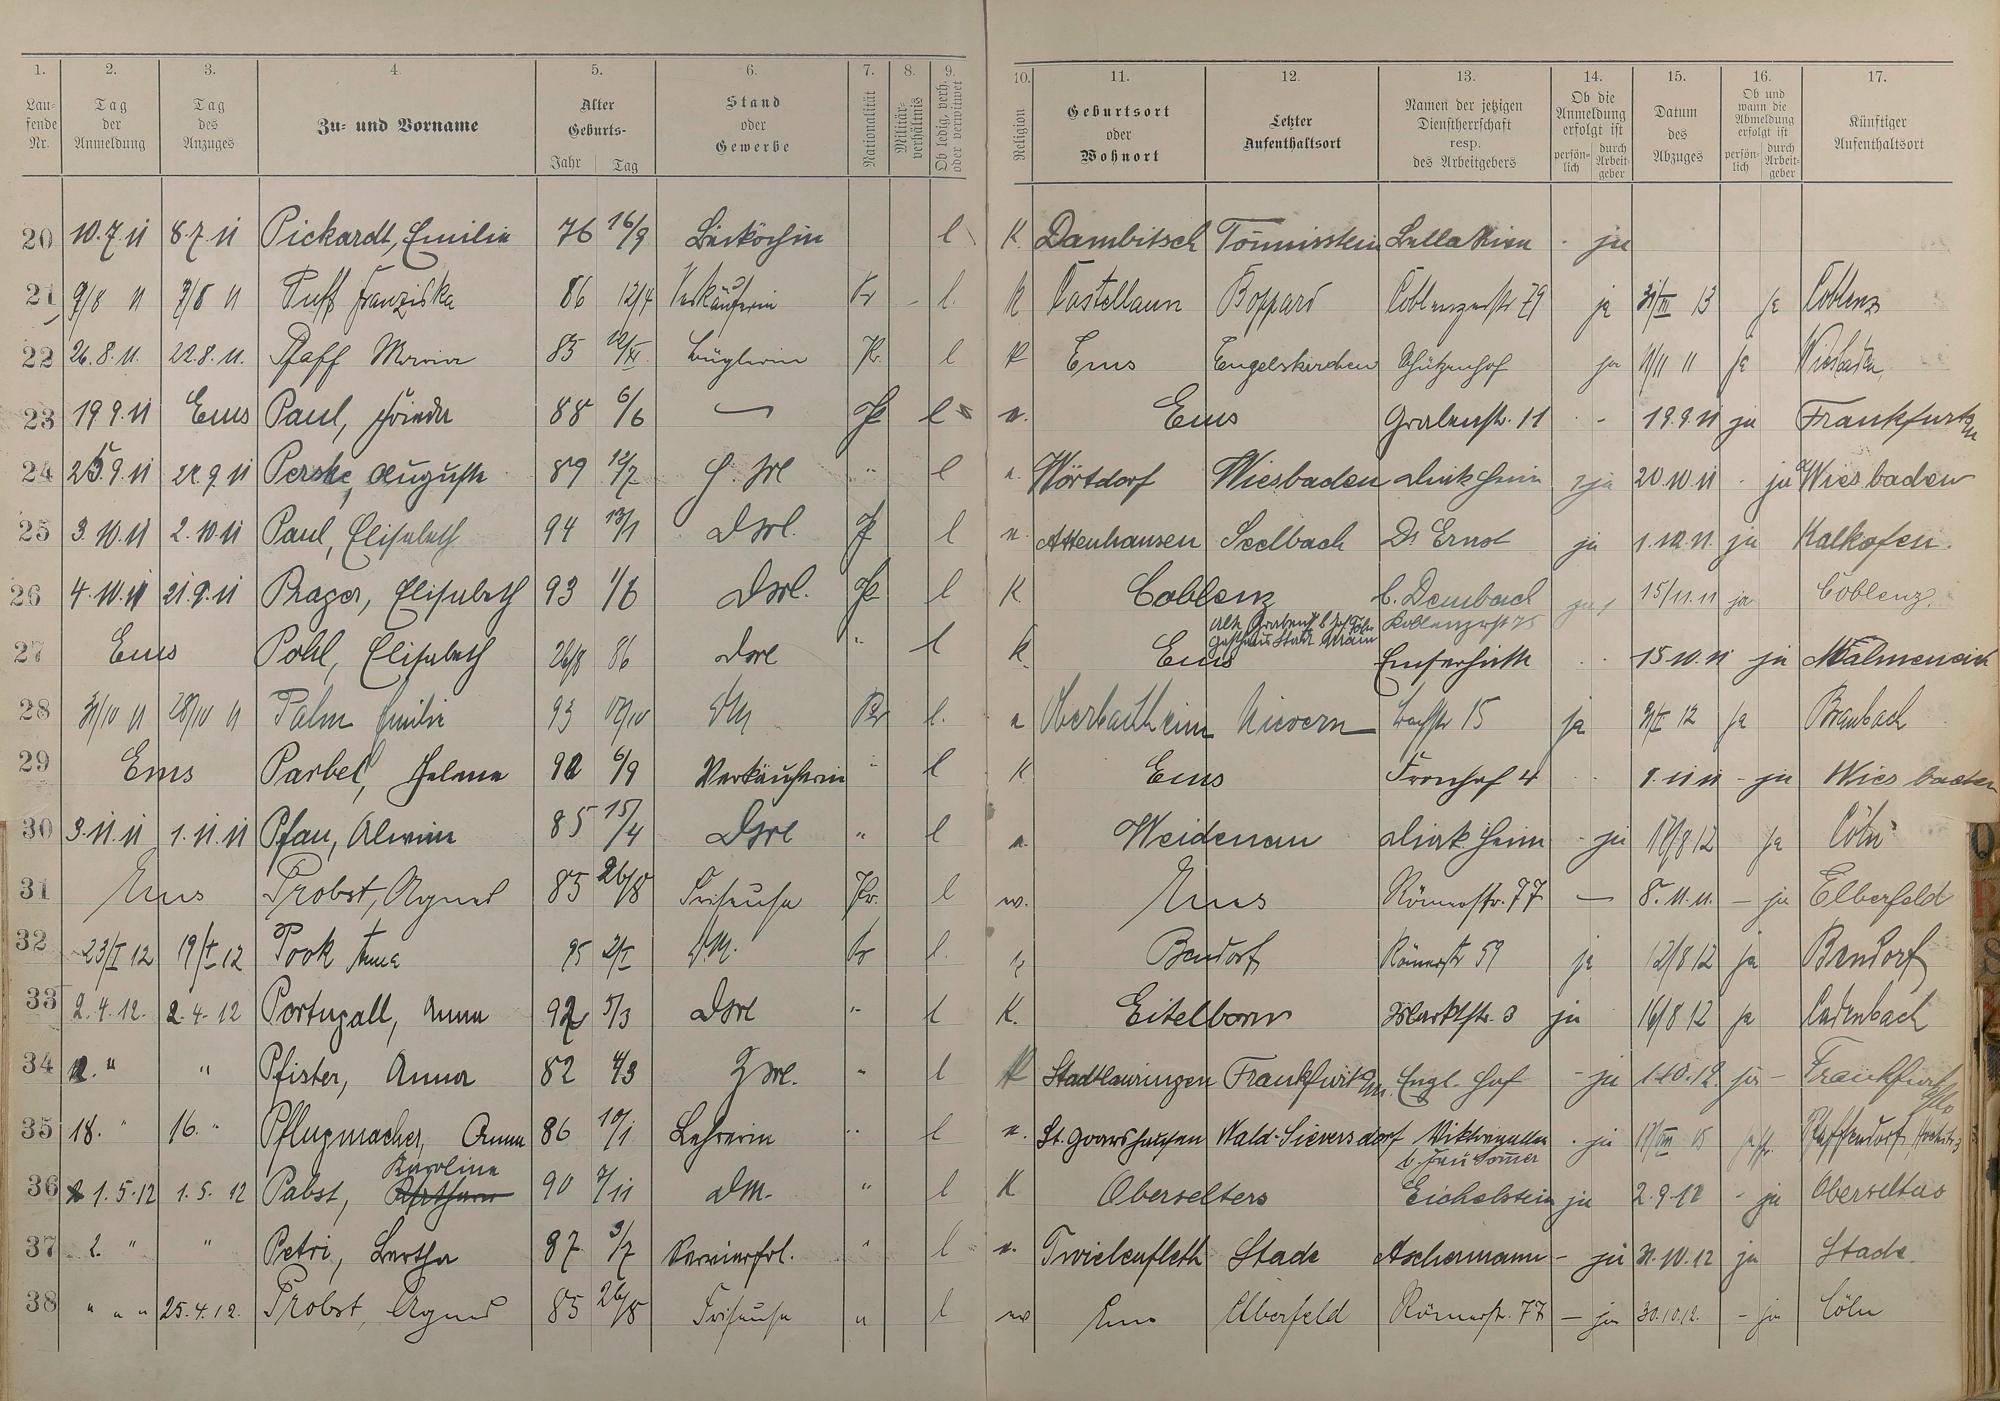 1. 2. 3. 4. 5. 6. 7. 8. 9. 10. 11. 12. 13. 14. 15. 16. 17.
Lau-
fende
Nr.
Tag
der
Anmeldung
Tag
des
Anzuges
Zu- und Vorname
Alter
Geburts-
Jahr Tag
Stand
oder
Gewerbe
Nationalität
Militär-
verhältnis
Ob ledig, verh.
oder verwitwet
Religion
Geburtsort
oder
Wohnort
Letzter
Aufenthaltsort
Namen der jetzigen
Dienstherrschaft
resp.
des Arbeitgebers
Ob die
Anmeldung
erfolgt ist
persön-
lich
durch
Arbeit-
geber
Datum
des
Abzuges
Ob und
wann die
Abmeldung
erfolgt ist
persön-
lich
durch
Arbeit-
geber
Künftiger
Aufenthaltsort
20 10.7.11 8.7.11 Pickardt, Emilie 76 16/9 Beiköchin l K. Dambitsch Tönnisstein Bella Riva ja
21 9/8 11 7/8 11 Puff Franziska 86 12/4 Verkäuferin Pr l. K Castellaun Boppard Coblenzerstr 79 ja 31/III 13 ja Coblenz
22 26.8.11. 22.8.11. Pfaff Maria 85 22/XI Büglerin Pr. l K Ems Engelskirchen Schützenhof ja 11/11 11 ja Wiesbaden
23 19.9.11 Ems Paul, Frieda 88 6/6 — Pr l e. Ems Grabenstr. 11 - 19.9.11 ja Frankfurt a/M
24 25.9.11 22.9.11 Perske, Auguste 89 12/7 " l e. Wörtdorf Wiesbaden ja 20.10.11 ja Wiesbaden
25 3.10.11 2.10.11 Paul, Elisabeth 94 13/1 Dml. Pr l e. Attenhausen Seelbach Dr Ernst ja 1.12.11. ja Kalkofen.
26 4.10.11 21.9.11 Prager, Elisabeth 93 1/6 Dml. Pr l K. Coblenz b. Dembach ja 15/11.11 ja Coblenz.
Coblenzerst 75
27 Ems Pohl, Elisabeth 26/8 86 Dml " l K. Ems Emserhütte 15.10.11 ja
28 31/10 11 28/10 11 Palm Emilie 93 17/10 DM Pr l. e Nievern 15 ja 31/I 12 ja Braubach
29 Ems Parbel, Helene 92 6/9 Verkäuferin " l K Ems Fronhof 4 1.11.11 - ja Wiesbaden
30 3.11.11 1.11.11 Pfau, Alwine 85 15/4 Dml " l e. Weidenau - ja 17/8 12 ja Cöln
31 Ems Probst, Agnes 85 26/8 Friseuse Pr. l ev. Ems Römerstr. 77 — 8.11.11. — ja Elberfeld
32 23/I 12 19/I 12 Pook Anna 95 2/I DM. Pr l. Bendorf Römerstr 59 ja 12/8 12 ja Bendorf
33 2.4.12. 2.4.12 Portugall, Anna 92 5/3 Dml " l K. Eitelborn Marktstr. 3 ja 16/8 12 ja Cadenbach
34 2. " " Pfister, Anna 82 4/3 Zml. " l K Stadtlauringen Frankfurt a/M. Engl. Hof - ja 1.10.12 ja - Frankfurt
35 18. " 16. " Pflugmacher, Anna 86 10/1 Lehrerin " l e. St. Goarshausen Wald-Sieversdorf ja 17/VIII 15 Pfaffendorf
36 1.5.12 1.5.12 Pabst, Karoline 90 7/11 DM. " l K Oberselters Eichelstein ja 2.9.12 - ja Oberselters
37 2. " " Petri, Bertha 87 3/7 Servierfrl. " l e. Twielenfleth Stade Aschermann - ja 31.10.12 ja Stade.
38 " " " 25.4.12. Probst, Agnes 85 26/8 Friseuse " l ev Ems Elberfeld Römerstr. 77 — ja 30.10.12. — ja Cöln